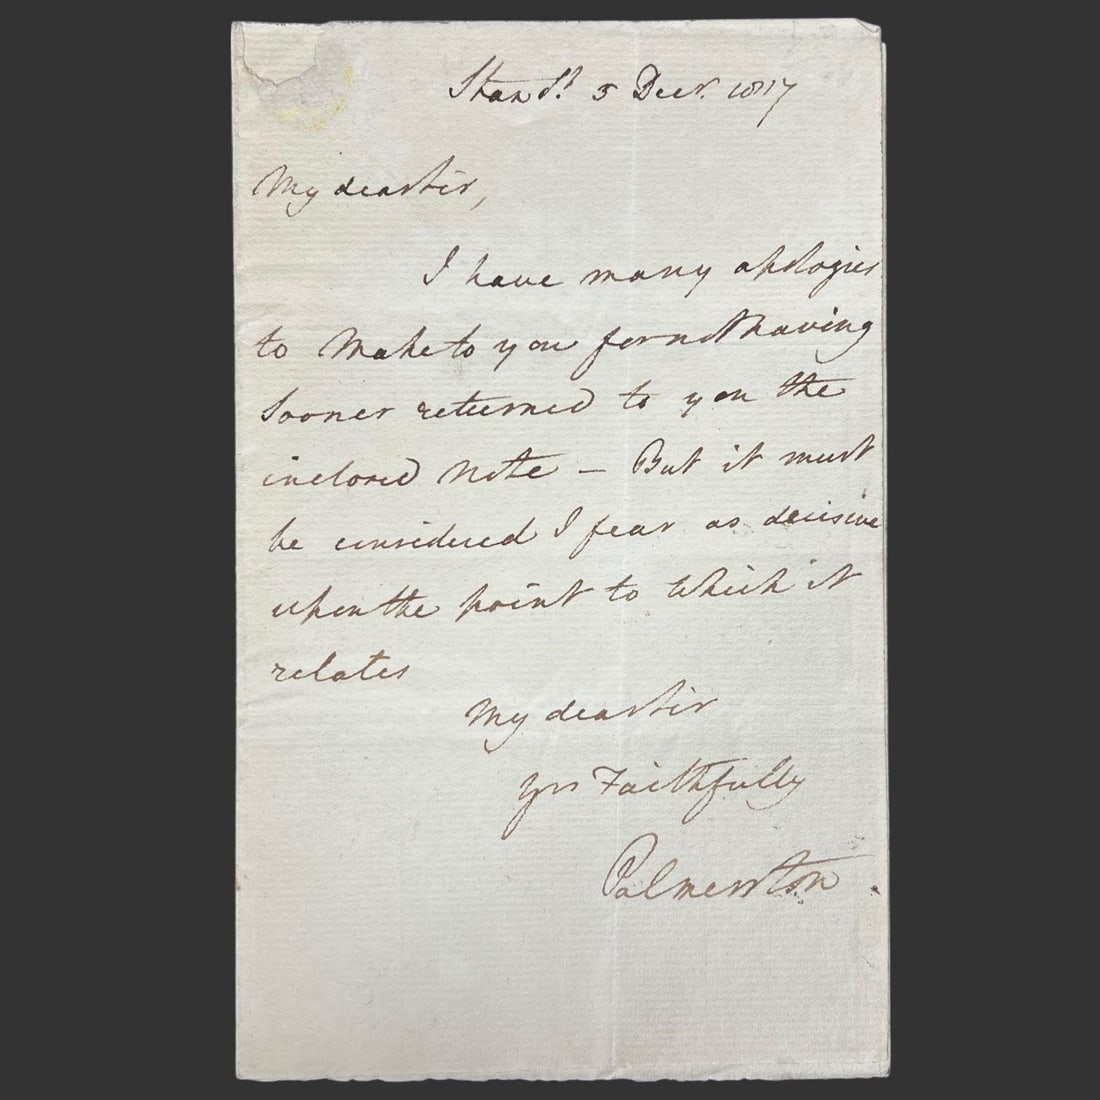 Stan St. 5 Decr. 1817
My dear Sir,
I have many apologies
to Make to you for not having
sooner returned to you the
inclosed Note – But it must
be considered I fear as decisive
upon the point to which it
relates
My dear Sir
Yrs Faithfully
Palmerston